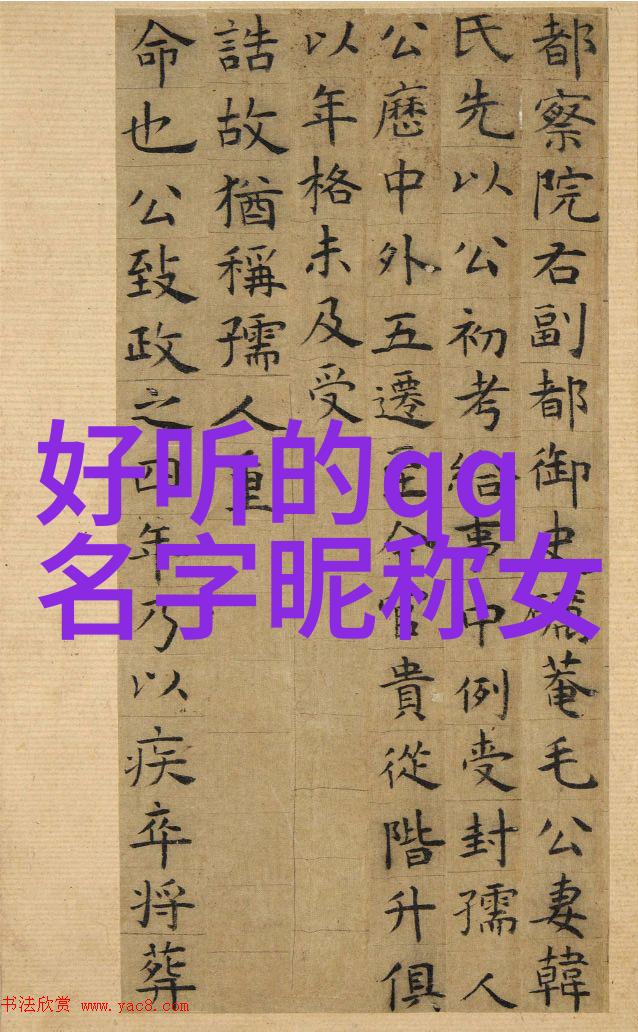 都察院右副都御史菴毛公妻韓
氏先以公初考給事中例受封孺人
公歷中外五遷至今官貴從階升俱
以年格未及受
誥故猶稱孺人重
命也公致政之四年乃以疾卒將葬
好听的qq
名字昵称女
书法欣赏 www.yac8.com